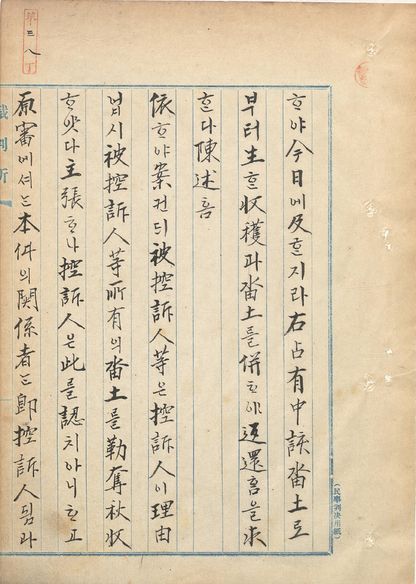 第三八丁
ᄒᆞ야今日에及ᄒᆞᆫ지라右占有中該畓土로
부터生ᄒᆞᆫ收穫과畓土를併ᄒᆞ야返還홈을求
ᄒᆞᆫ다陳述홈
依ᄒᆞ야案컨ᄃᆡ被控訴人等은控訴人이理由
업시被控訴人等所有의畓土를勒奪秋收
ᄒᆞ얏다主張ᄒᆞ나控訴人은此를認치아니ᄒᆞ고
原審에셔는本件의関係者는即控訴人됨과
裁判所
(民事判決用紙)